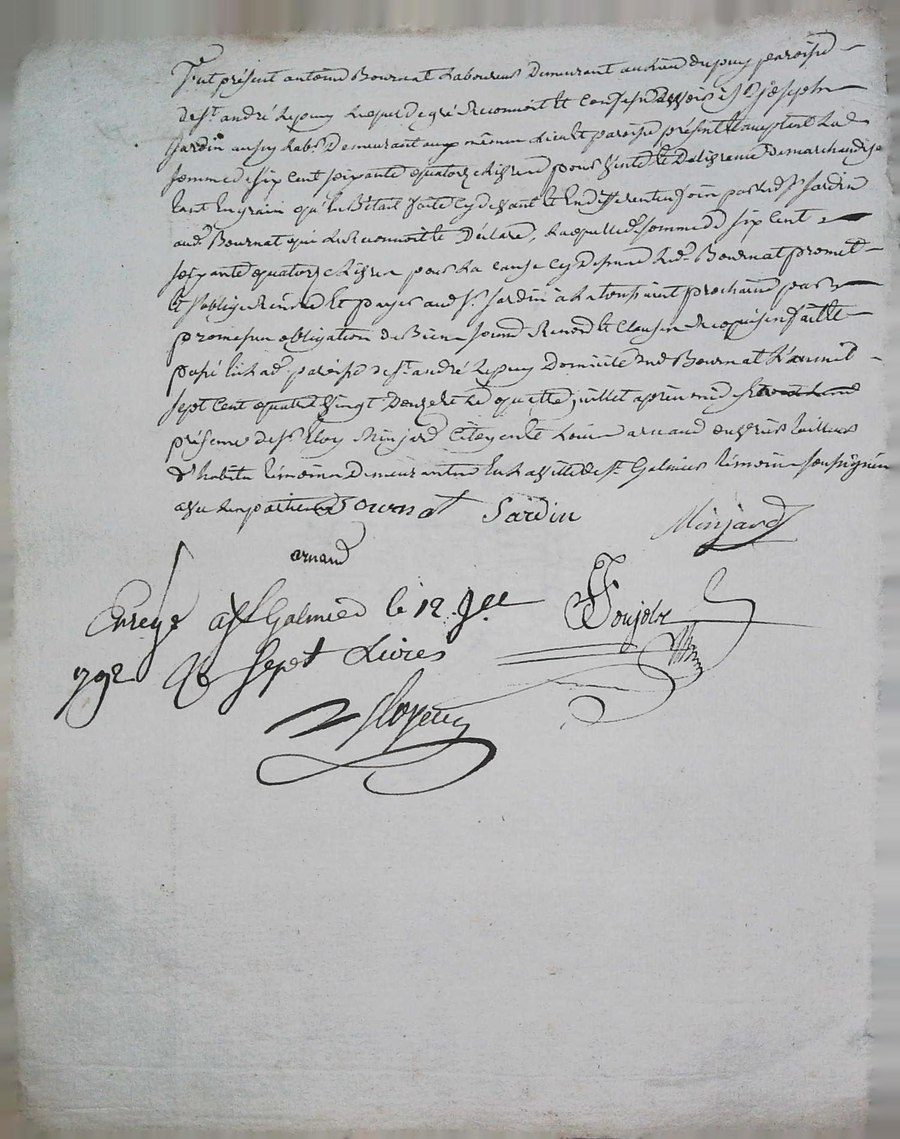 Fut présent antoine Bournat Laboureur Demeurant au lieu du puy paroisse
de st. andré Lepuy Lequel de gré Reconnoit et confesse devoir à sr. joseph
jardin aussy Lab.r Demeurant aux mêmes Lieu et paroisse présent et acceptant La
somme de six cent soixante quatorze Livres pour vente et Delivrance De marchandise
tant En grain qu'En Bétail faite cy devant et En differentes fois par led. Sr. jardin
aud. Bournat qui Le Reconnoit et Déclare, Laquelle somme de six cent
soixante quatorze Livres pour La cause cy Dessus Led. Bournat promet
et s'oblige Rendre et payer aud. Sr. jardin à La toussaint prochaine par
promesse obligation de Bien soumis Renond. et Clauses Requises fait et
passé Lieu ad. paroisse de st. andré Lepuy Domicile dud. Bournat L'an mil
sept cent quatre vingt Douze et Le quatre juillet après midy
présence de sr. Eloy Minjard Citoyen et Louis arnaud ouvrier tailleur
d'habits témoins Demeurant en La ville de st. Galmier témoins soussignés
avec Les parties Bournat Jardin Minjard
arnaud
Enregé a St Galmier le 12 Jlle
1792 sept Livres